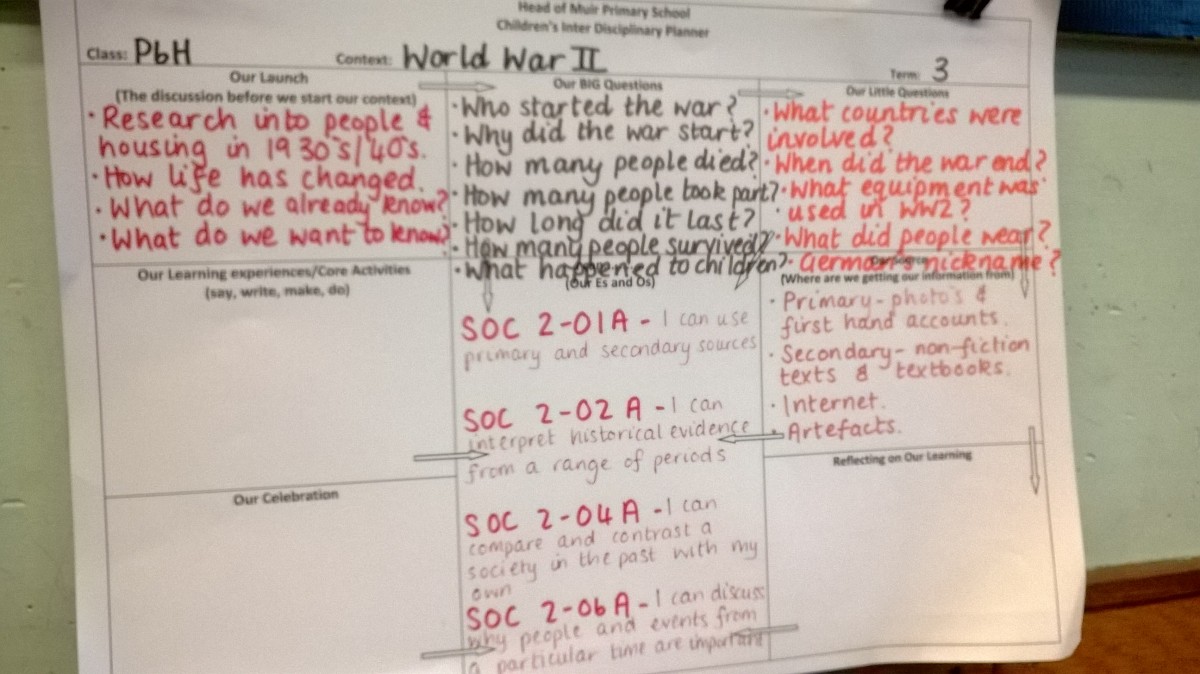 Head of Muir Primary School
Children's Inter Disciplinary Planner
Class: P6H
Context: World War II
Term: 3
Our Launch
(The discussion before we start our context)
• Research into people &
housing in 1930's/40's.
• How life has changed.
• What do we already know?
• What do we want to know?
Our BIG Questions
• Who started the war?
• Why did the war start?
• How many people died?
• How many people took part?
• How long did it last?
• How many people survived?
• What happened to children?
Our Little Questions
• What countries were
involved?
• When did the war end?
• What equipment was
used in WW2?
• What did people wear?
• German's nickname?
Our Learning experiences/Core Activities
(say, write, make, do)
(Our Es and Os)
SOC 2-01A - I can use
primary and secondary sources
SOC 2-02 A - I can
interpret historical evidence
from a range of periods
SOC 2-04 A - I can
compare and contrast a
society in the past with my
own
SOC 2-06 A - I can discuss
why people and events from
a particular time are important
(Where are we getting our information from)
• Primary - photo's &
first hand accounts.
• Secondary - non-fiction
texts & textbooks.
• Internet.
• Artefacts.
Our Celebration
Reflecting on Our Learning